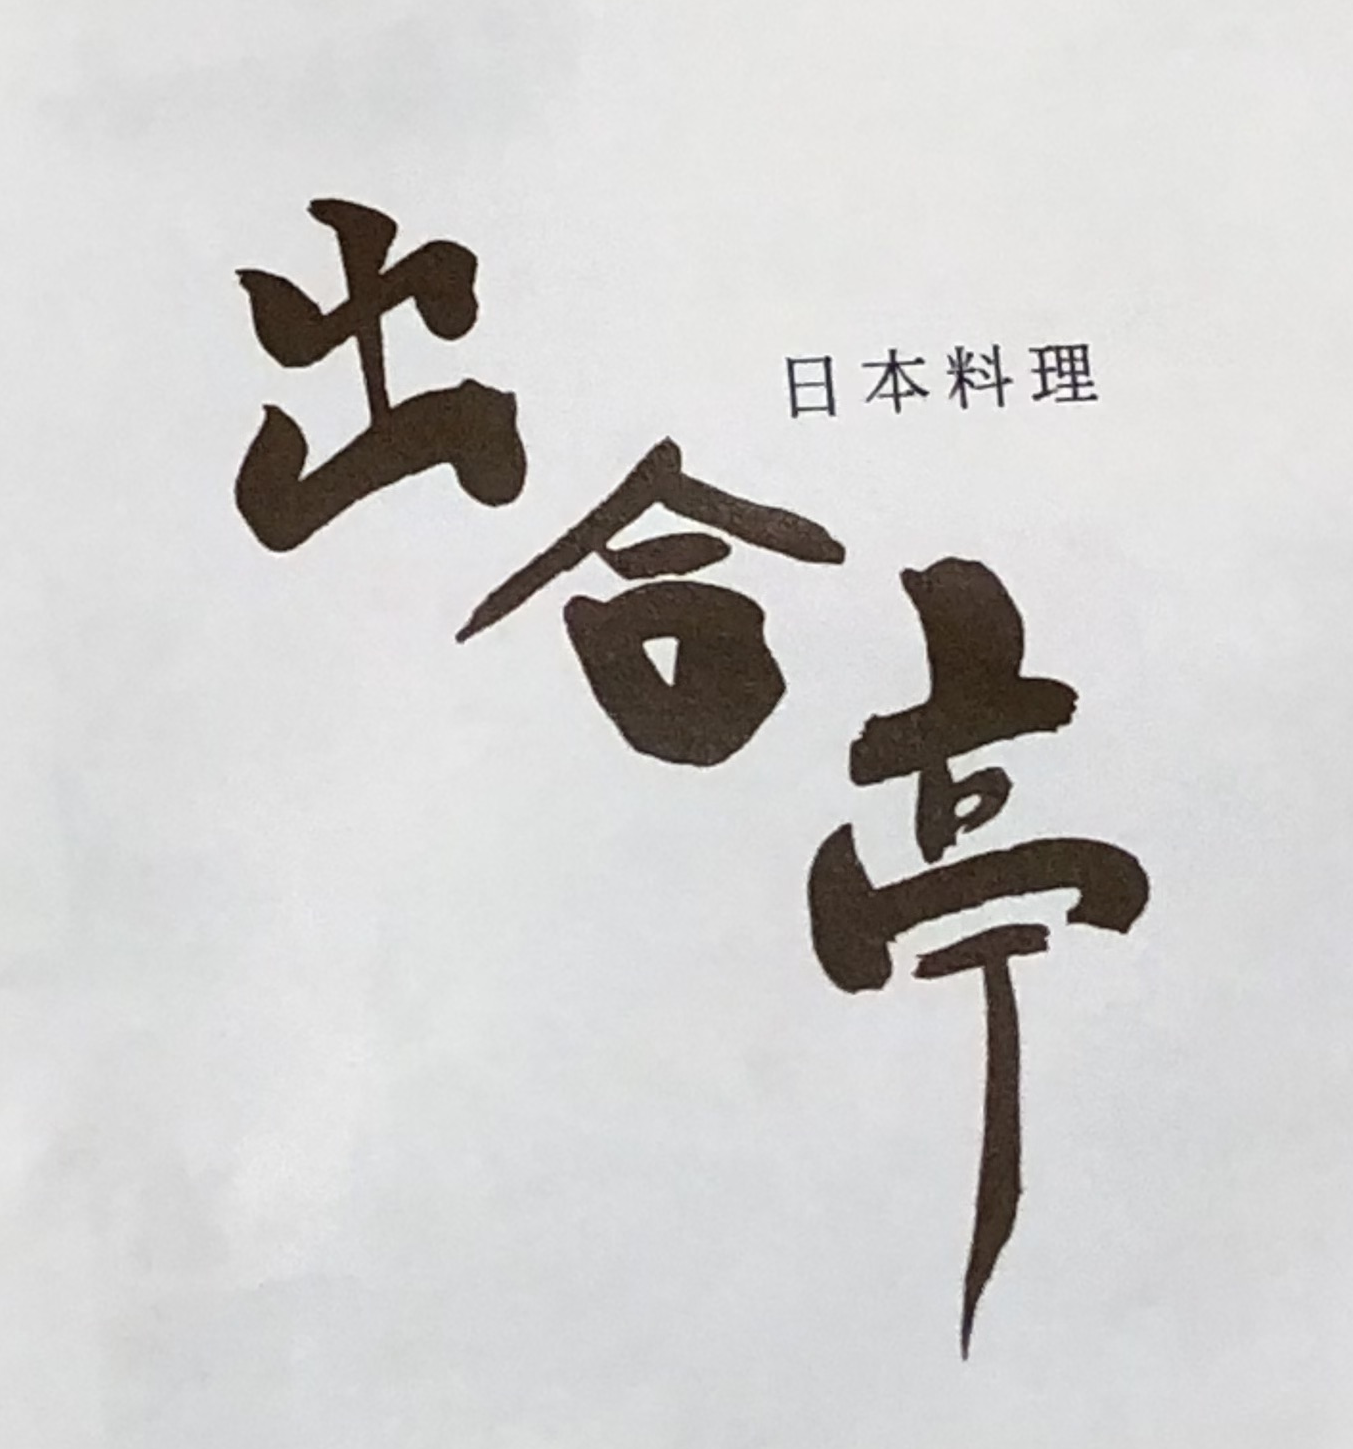 日本料理
出合亭